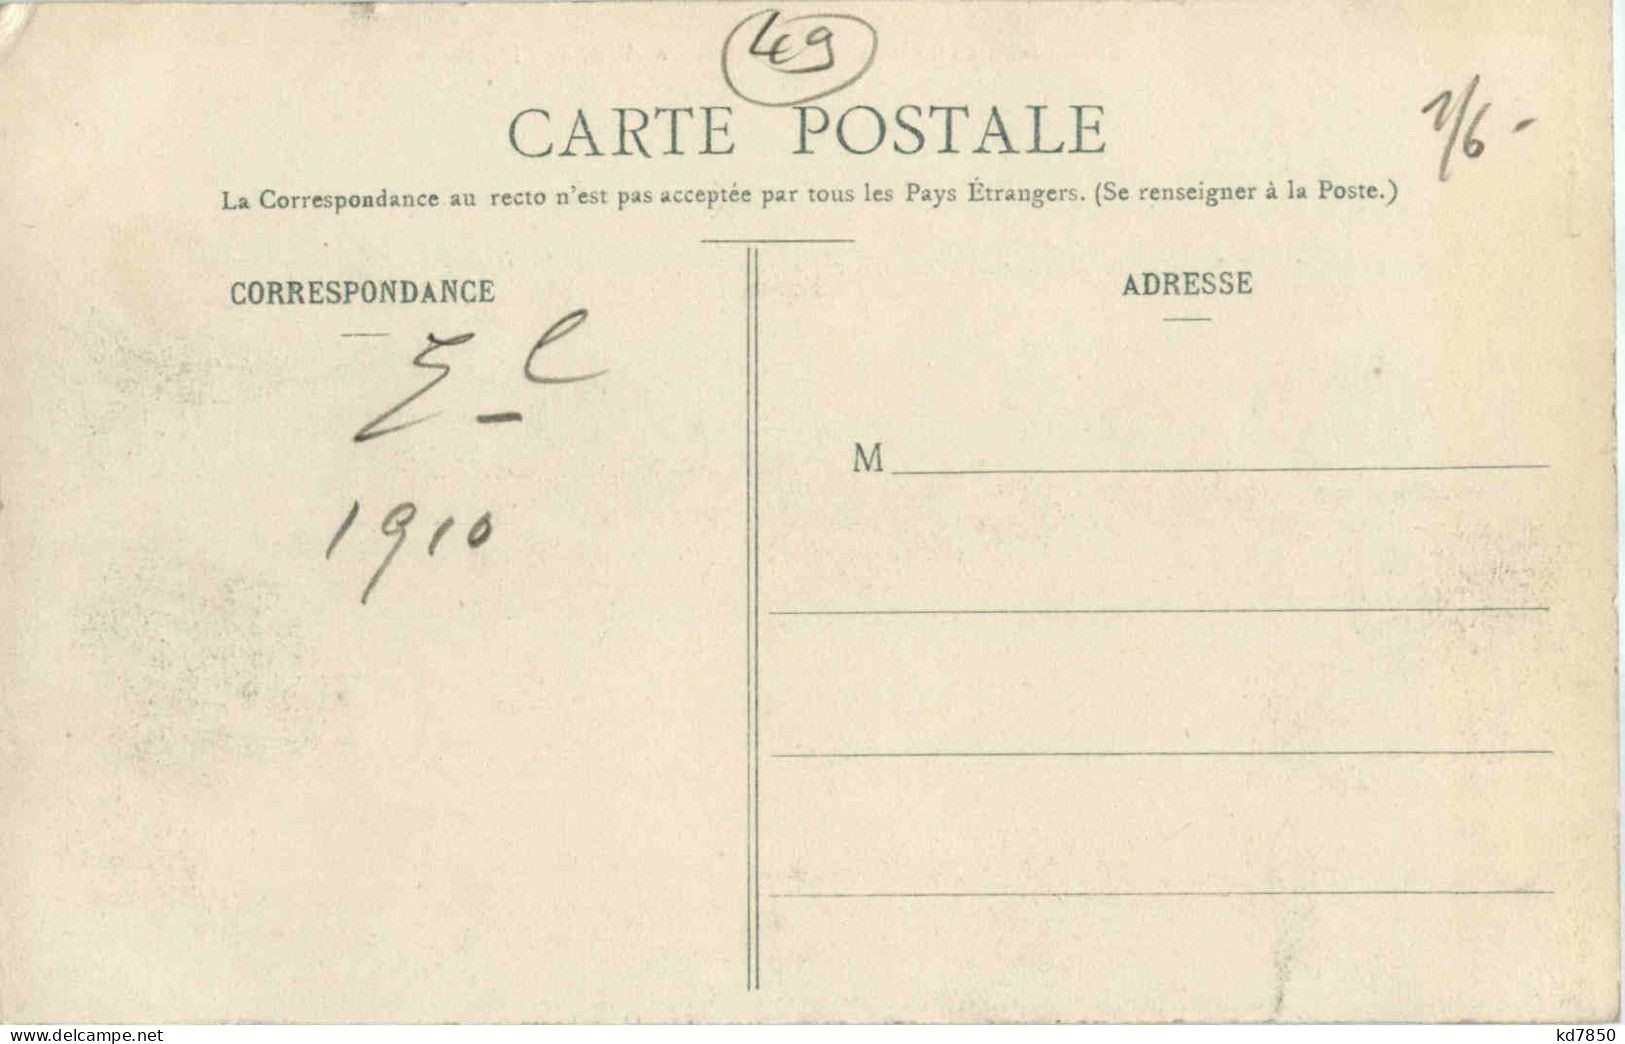 49
CARTE POSTALE
La Correspondance au recto n'est pas acceptée par tous les Pays Étrangers. (Se renseigner à la Poste.)
CORRESPONDANCE
1910
ADRESSE
M
www.delcampe.net
kd7850